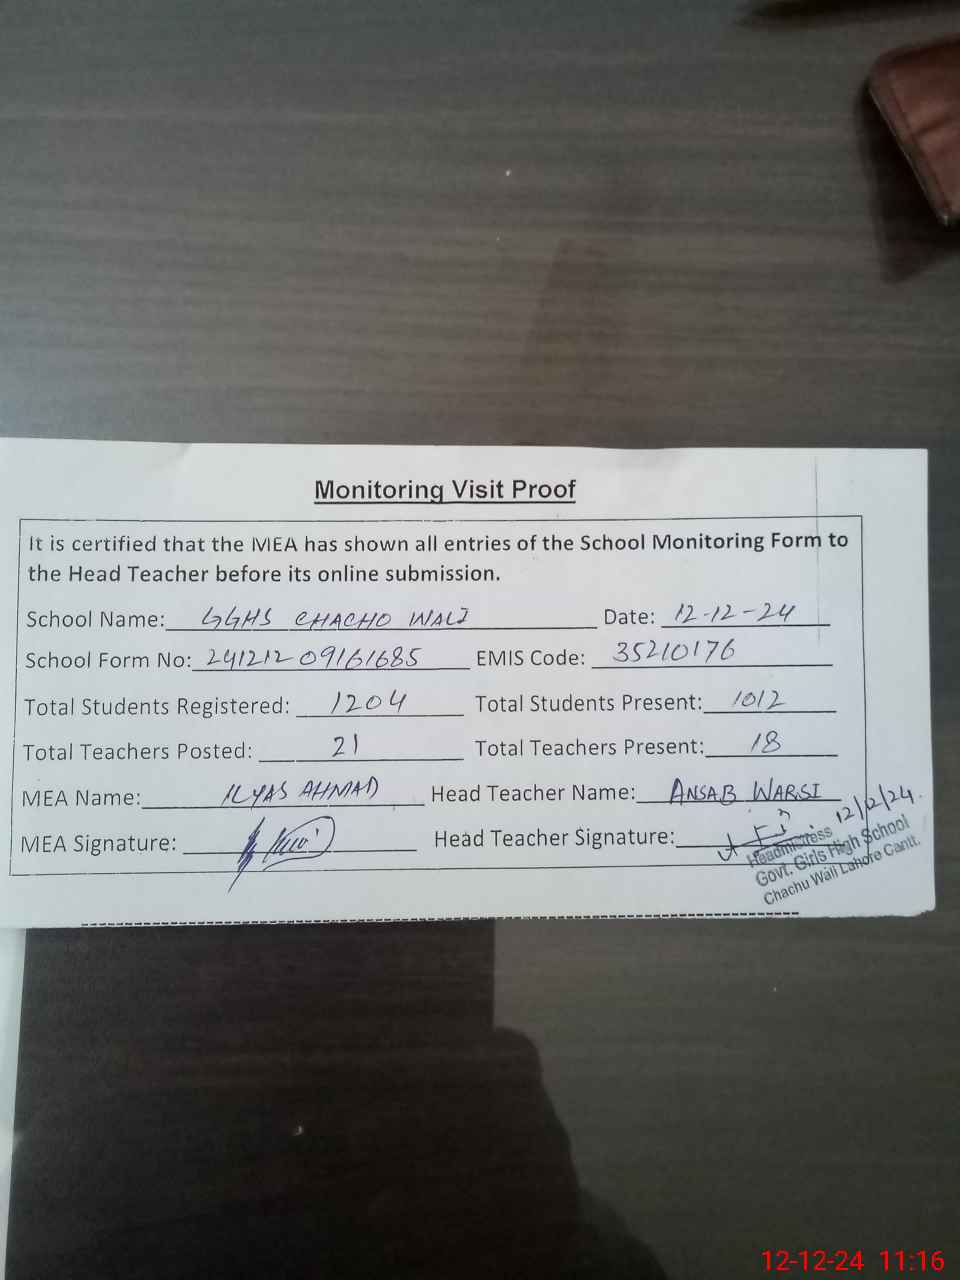 Monitoring Visit Proof
It is certified that the MEA has shown all entries of the School Monitoring Form to
the Head Teacher before its online submission.
School Name: GGHS CHACHO WALI Date: 12-12-24
School Form No: 24121209161685 EMIS Code: 35210176
Total Students Registered: 1204 Total Students Present: 1012
Total Teachers Posted: 21 Total Teachers Present: 18
MEA Name: ILYAS AHMAD Head Teacher Name: ANSAB WARSI
MEA Signature: Head Teacher Signature: 12/12/24.
Headmistress
Govt. Girls High School
Chachu Wali Lahore Cantt.
12-12-24 11:16